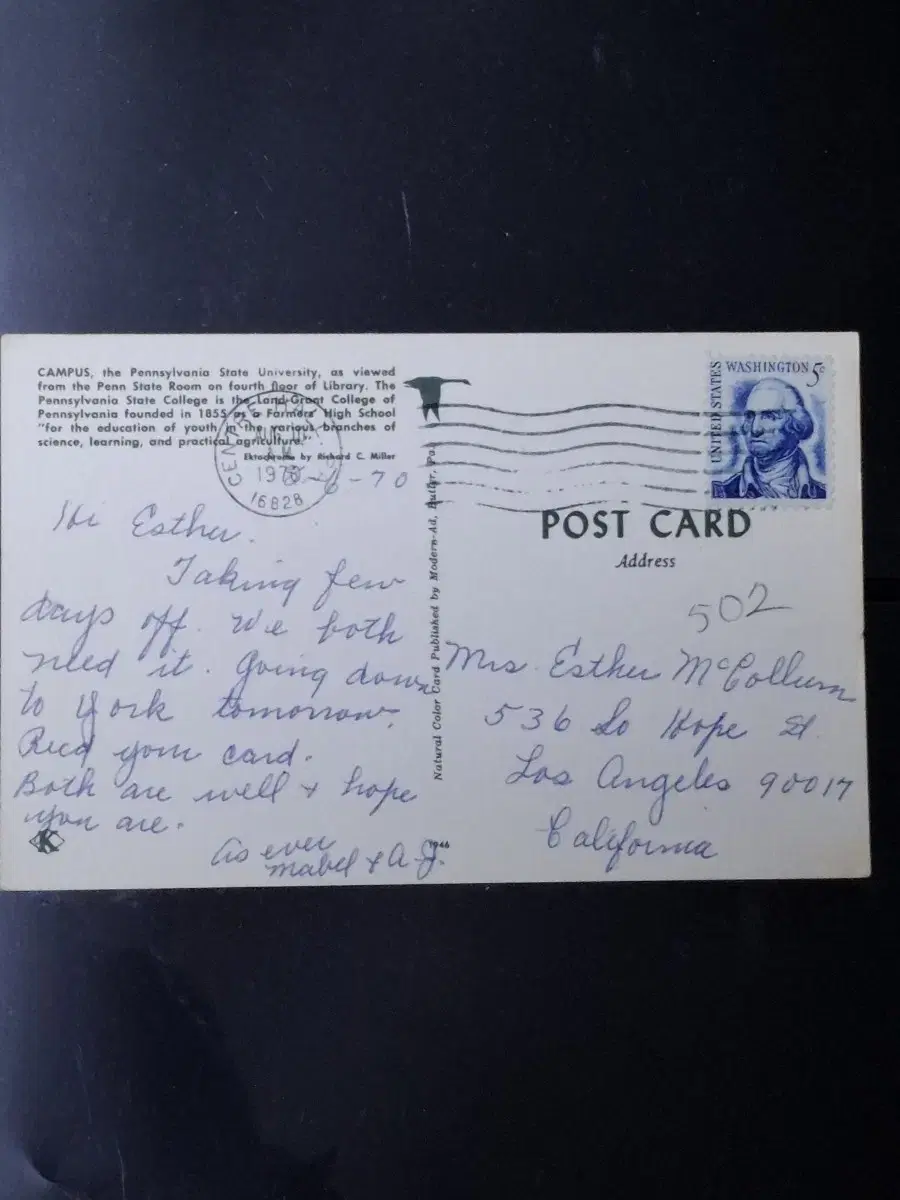 CAMPUS, the Pennsylvania State University, as viewed
from the Penn State Room on fourth floor of Library. The
Pennsylvania State College is the Land-Grant College of
Pennsylvania founded in 1855 as a Farmers' High School
"for the education of youth in the various branches of
science, learning, and practical agriculture."
Ektachrome by Richard C. Miller
AM
1970
16828
6-70
Hi Esther.
Taking few
days off. We both
need it. Going down
to York tomorrow.
Recd your card.
Both are well + hope
you are.
As ever
Mabel & A.J.
K
1946
Natural Color Card Published by Modern-Ad, Butler, Pa.
UNITED STATES
WASHINGTON 5c
POST CARD
Address
502
Mrs. Esther McCollum
536 So Hope St.
Los Angeles 90017
California